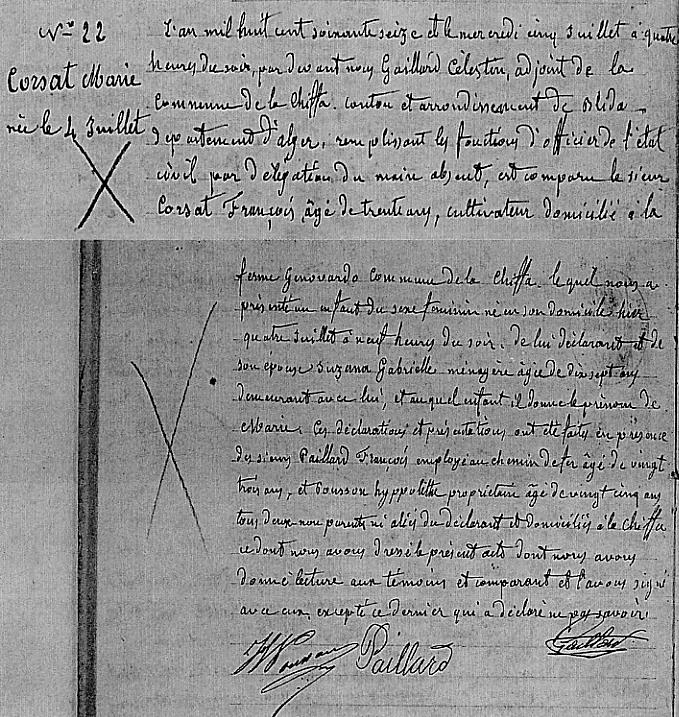 Nro 22
Corsat Marie
née le 4 Juillet
L'an mil huit cent soixante seize et le mercredi cinq Juillet à quatre
heures du soir, par devant nous Gaillard Célestin, adjoint de la
Commune de la Chiffa, canton et arrondissement de Blida
département d'Alger, remplissant les fonctions d'officier de l'état
civil par délégation du maire absent, est comparu le sieur
Corsat François, âgé de trente ans, cultivateur domicilié à la
ferme Genovardo Commune de la Chiffa. lequel nous a
présenté un enfant du sexe féminin né en son domicile hier
quatre Juillet à neuf heures du soir, de lui déclarant et de
son épouse Suzana Gabrielle ménagère âgée de dix sept ans
demeurant avec lui, et auquel enfant il donne le prénom de
Marie. Ces déclarations et présentations ont été faites en présence
des sieurs Paillard François employé au chemin de fer âgé de vingt
trois ans, et Pousson hyppolitte propriétaire âgé de vingt cinq ans
tous deux non parents ni aliés du déclarant et domiciliés à la Chiffa
ce dont nous avons dressé le présent acte dont nous avons
donné lecture aux témoins et comparant et l'avons signé
avec eux, excepté ce dernier qui a déclaré ne pas savoir.
H Pousson Paillard Gaillard